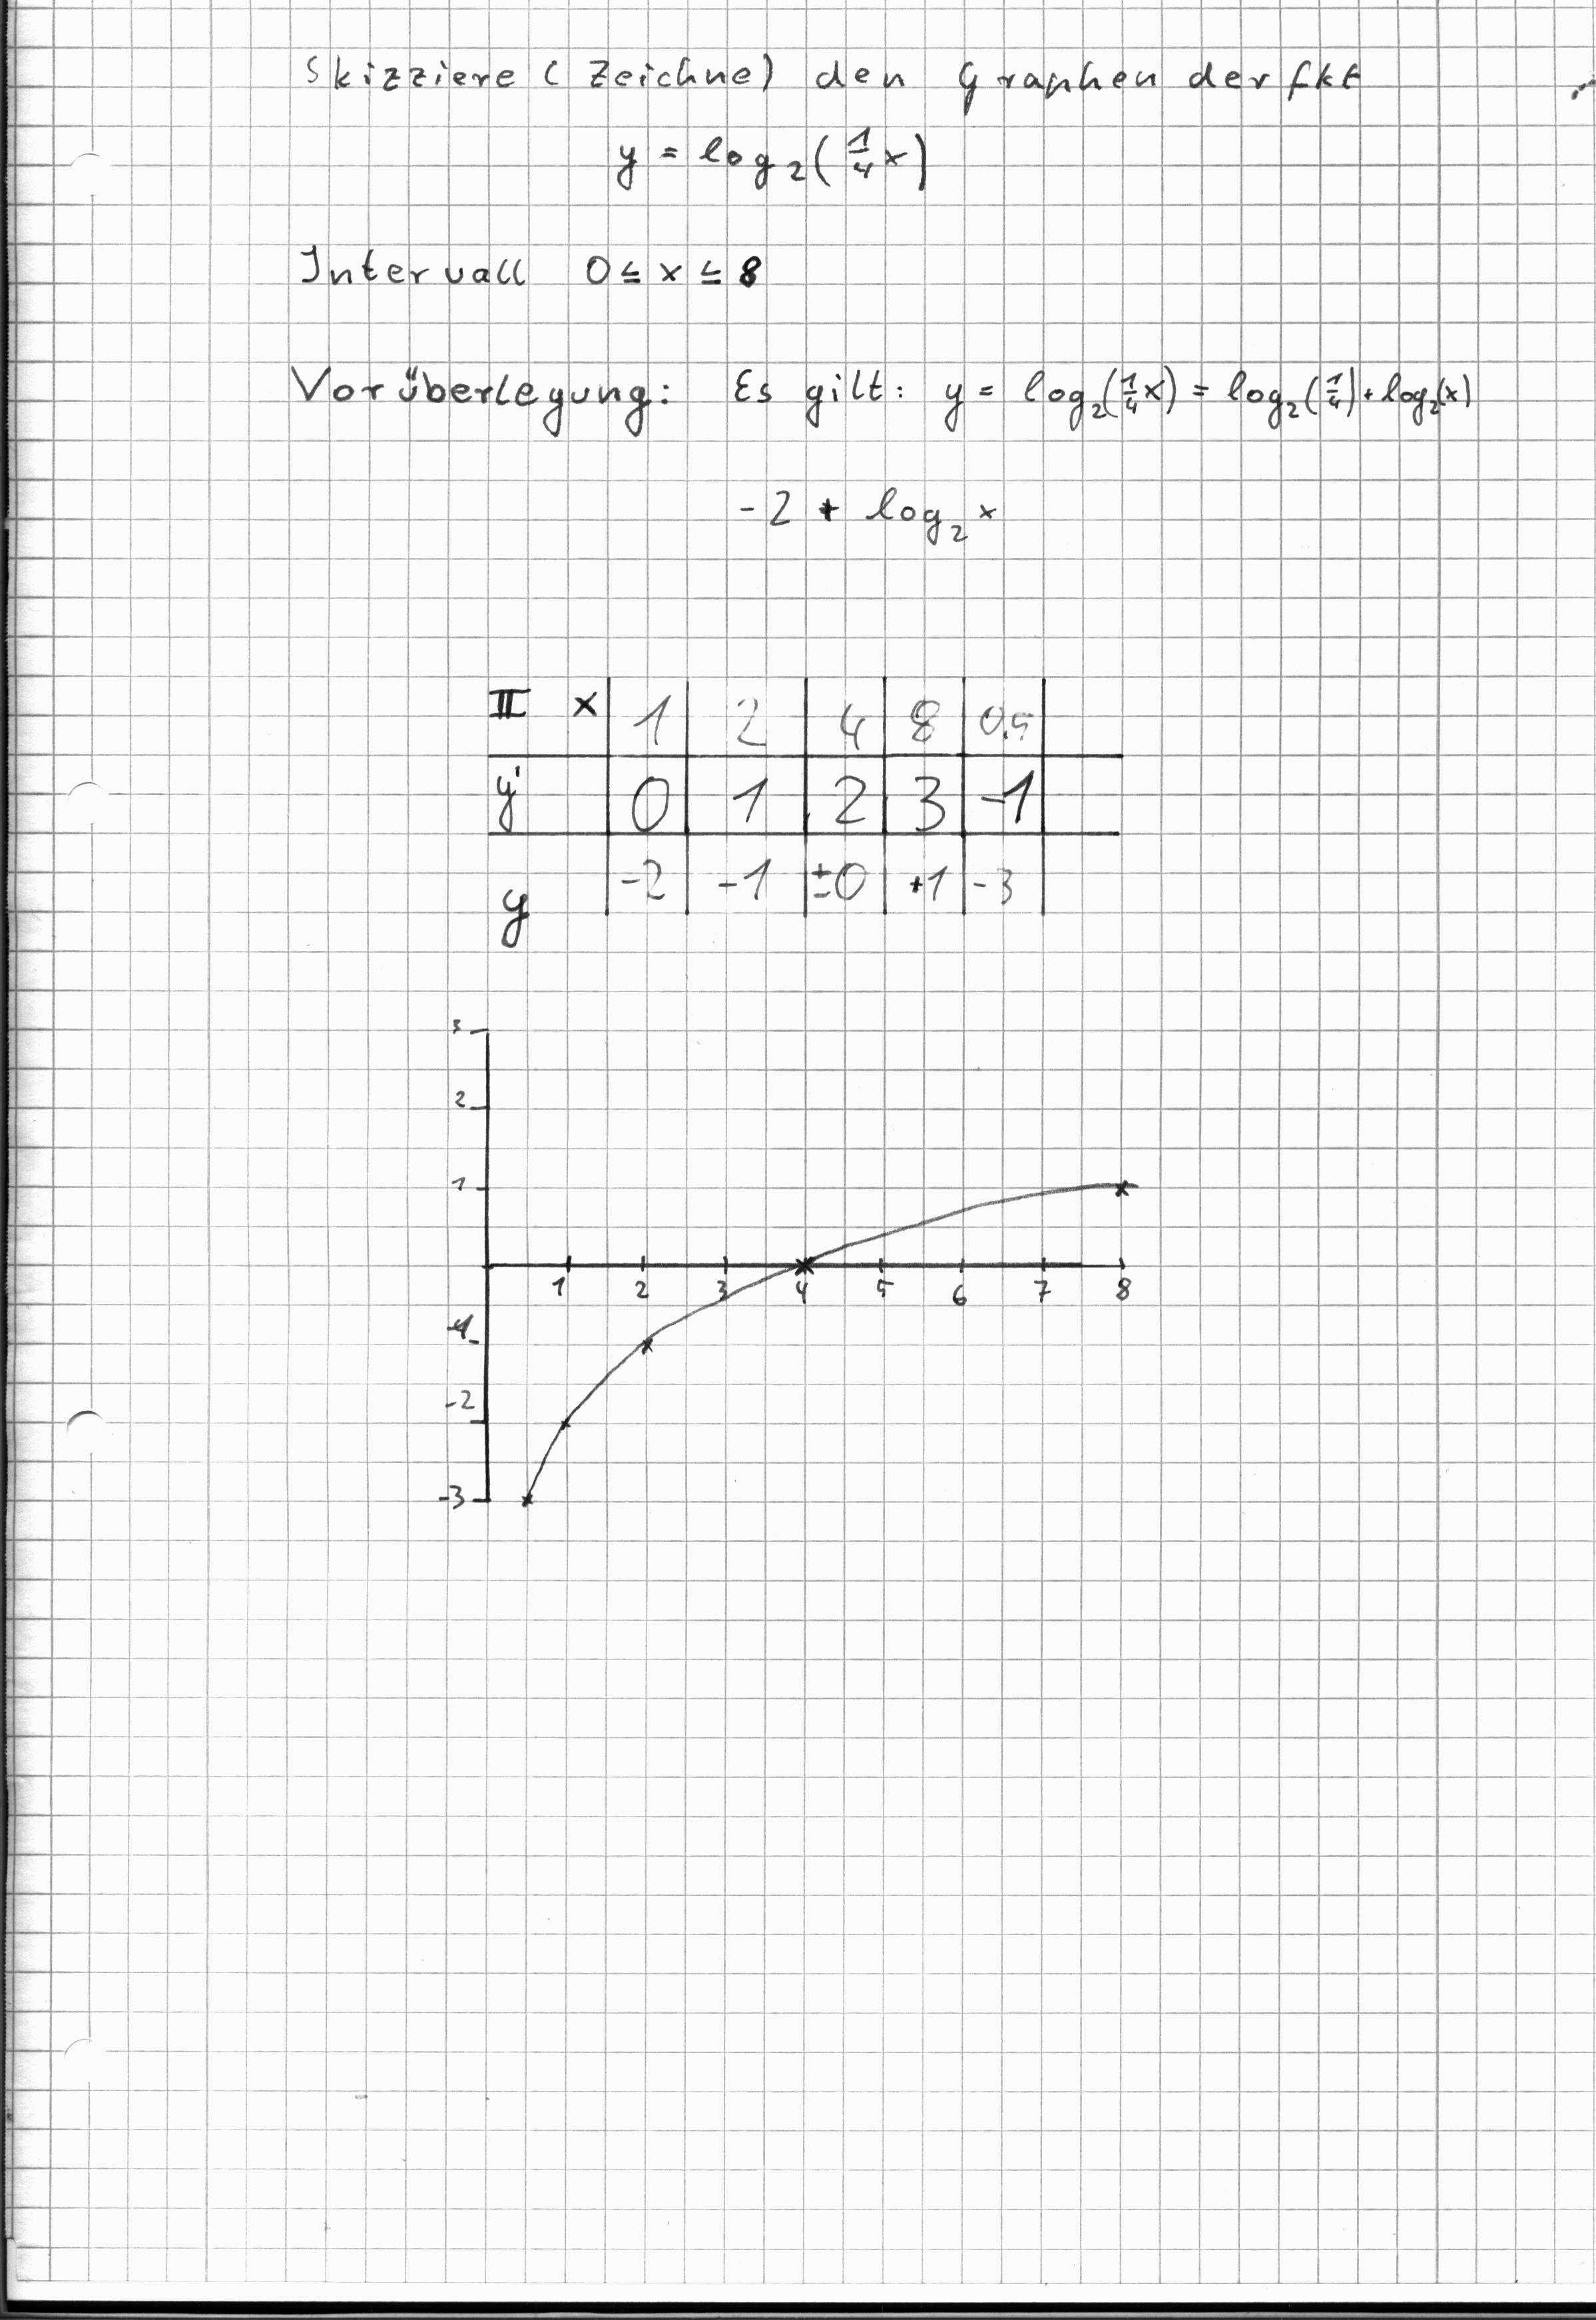 Skizziere (Zeichne) den Graphen der Fkt
y = log₂(1/4 x)
Intervall 0 ≤ x ≤ 8
Vorüberlegung: Es gilt: y = log₂(1/4 x) = log₂(1/4) + log₂(x)
-2 + log₂ x
II x 1 2 4 8 0,5
y' 0 1 2 3 -1
y -2 -1 ±0 +1 -3
3
2
1
1 2 3 4 5 6 7 8
-1
-2
-3